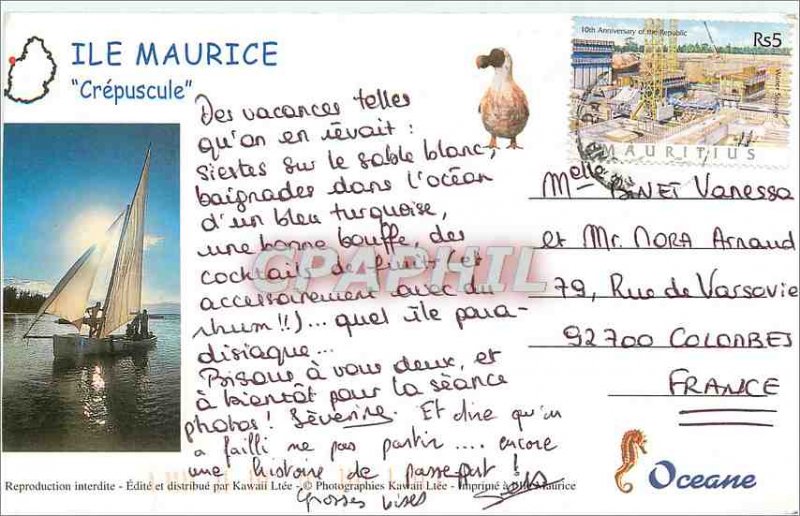 ILE MAURICE
"Crépuscule"
10th Anniversary of the Republic
Rs5
MAURITIUS
Des vacances telles
qu'on en rêvait :
siestes sur le sable blanc,
baignades dans l'océan
d'un bleu turquoise,
une bonne bouffe, des
cocktails de fruits (et
accessoirement avec du
rhum !!)... quel île para-
disiaque...
Bisous à vous deux, et
à bientôt pour la séance
photos ! Séverine. Et dire qu'on
a failli ne pas partir .... encore
une histoire de passe-port !
Grosses bises
Melle BINET Vanessa
et Mr. NORA Arnaud
79, Rue de Varsovie
92700 COLOMBES
FRANCE
CPAPHIL
Oceane
Reproduction interdite - Édité et distribué par Kawaii Ltée - © Photographies Kawaii Ltée - Imprimé à l'Ile Maurice